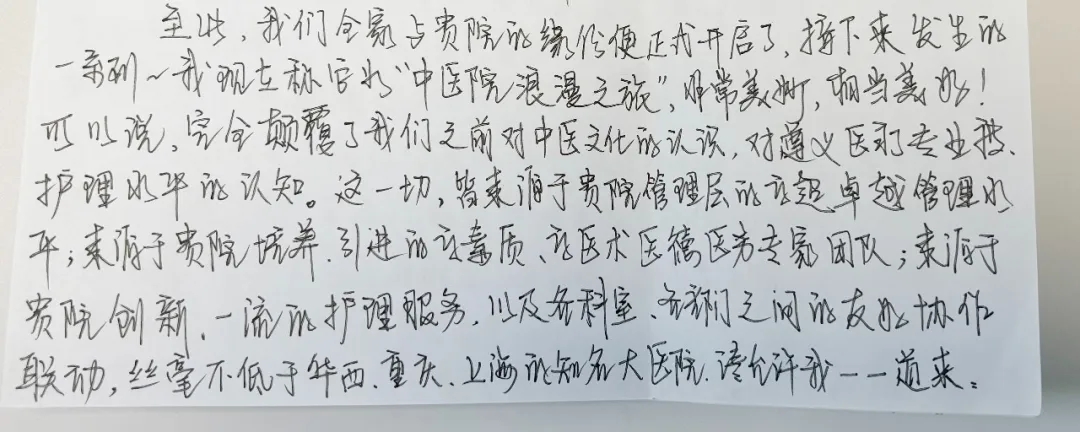 至此，我们全家与贵院的缘份便正式开启了，接下来发生的
一系列～我现在称它为“中医院浪漫之旅”，非常美妙，相当美好！
可以说，完全颠覆了我们之前对中医文化的认识，对遵义医疗专业技、
护理水平的认知。这一切，皆来源于贵院管理层的高超卓越管理水
平；来源于贵院培养、引进的高素质、高医术医德医务专家团队；来源于
贵院创新、一流的护理服务，以及各科室、各部门之间的友好协作
联动，丝毫不低于华西、重庆、上海的知名大医院。请允许我一一道来。